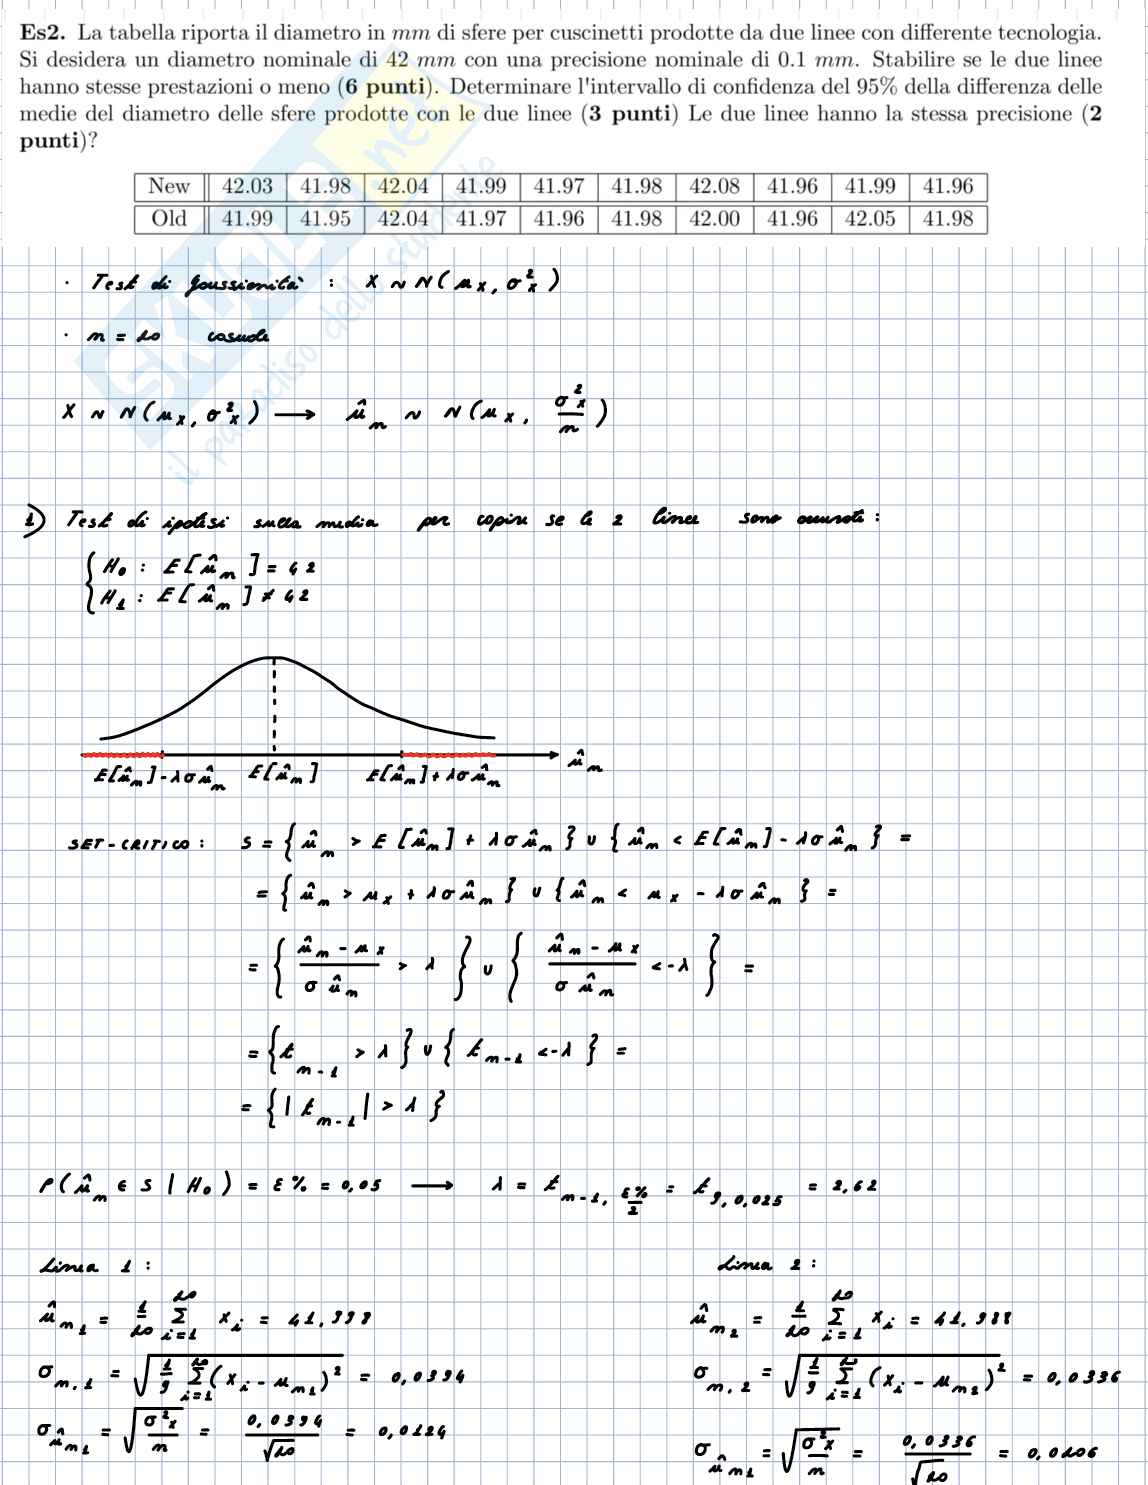 Es2. La tabella riporta il diametro in mm di sfere per cuscinetti prodotte da due linee con differente tecnologia.
Si desidera un diametro nominale di 42 mm con una precisione nominale di 0.1 mm. Stabilire se le due linee
hanno stesse prestazioni o meno (6 punti). Determinare l'intervallo di confidenza del 95% della differenza delle
medie del diametro delle sfere prodotte con le due linee (3 punti) Le due linee hanno la stessa precisione (2
punti)?
New 42.03 41.98 42.04 41.99 41.97 41.98 42.08 41.96 41.99 41.96
Old 41.99 41.95 42.04 41.97 41.96 41.98 42.00 41.96 42.05 41.98
SKUOLA.net
il paradiso dello studente
· Test di gaussianità : X ~ N(μx, σ²x)
· m = 10 casuale
X ~ N(μx, σ²x) → μ̂m ~ N(μx, σ²x/m)
1) Test di ipotesi sulla media per capire se le 2 linee sono accurate :
{ H0 : E[μ̂m] = 42
{ H1 : E[μ̂m] ≠ 42
μ̂m
E[μ̂m]-λσμ̂m E[μ̂m] E[μ̂m]+λσμ̂m
SET-CRITICO : S = { μ̂m > E[μ̂m] + λσμ̂m } ∪ { μ̂m < E[μ̂m] - λσμ̂m } =
= { μ̂m > μx + λσμ̂m } ∪ { μ̂m < μx - λσμ̂m } =
= { (μ̂m - μx)/σμ̂m > λ } ∪ { (μ̂m - μx)/σμ̂m < -λ } =
= { tm-1 > λ } ∪ { tm-1 < -λ } =
= { |tm-1| > λ }
P(μ̂m ∈ S | H0) = ε% = 0,05 → λ = tm-1, ε%/2 = t9, 0,025 = 2,62
Linea 1 : Linea 2 :
μ̂m1 = 1/10 Σ(i=1, 10) xi = 41,998 μ̂m2 = 1/10 Σ(i=1, 10) xi = 41,988
σm,1 = √(1/9 Σ(i=1, 10) (xi - μm1)²) = 0,0394 σm,2 = √(1/9 Σ(i=1, 10) (xi - μm2)²) = 0,0336
σμ̂m1 = √(σ²x/m) = 0,0394/√10 = 0,0124 σμ̂m2 = √(σ²x/m) = 0,0336/√10 = 0,0106